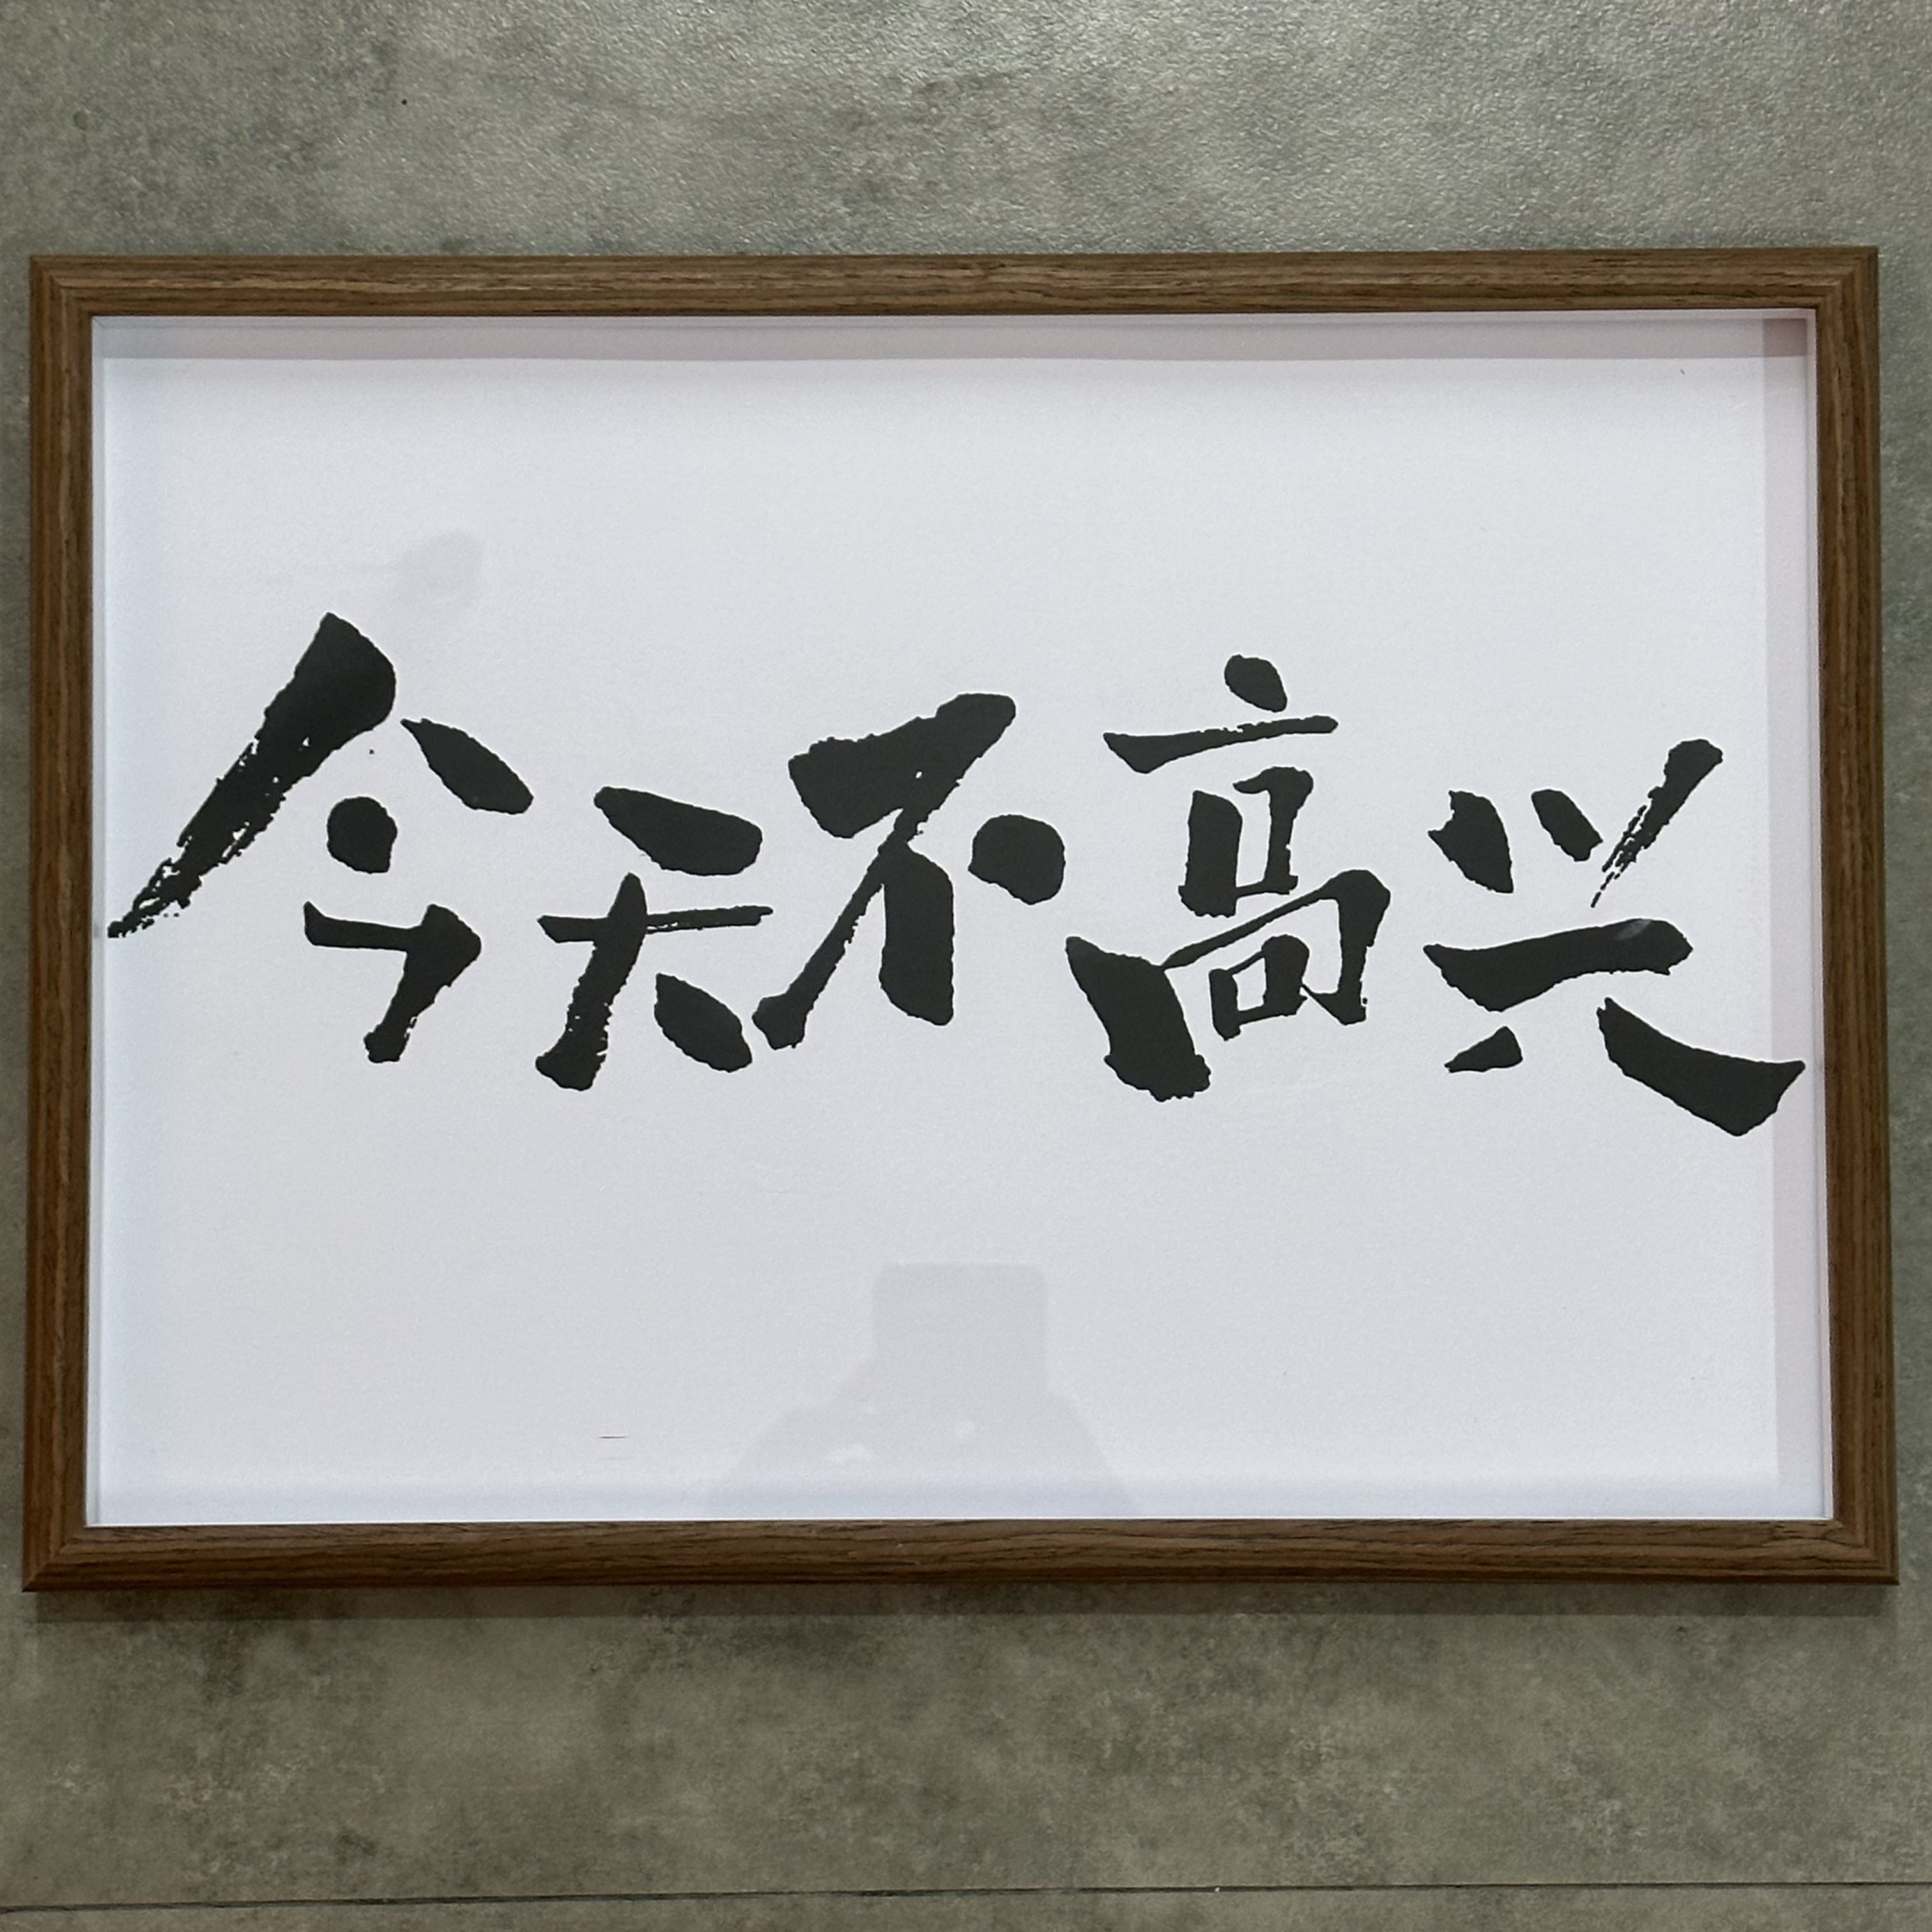 今天不高兴